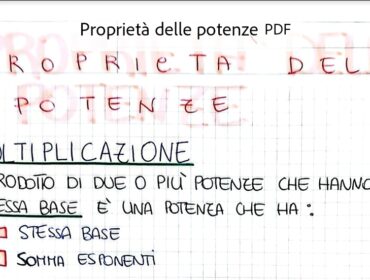 Proprietà delle potenze PDF
ROPRIETA' DEL
POTENZE
OLTIPLICAZIONE
RODOTTO DI DUE O PIÙ POTENZE CHE HANNO
ESSA BASE E' UNA POTENZA CHE HA:
STESSA BASE
SOMMA ESPONENTI